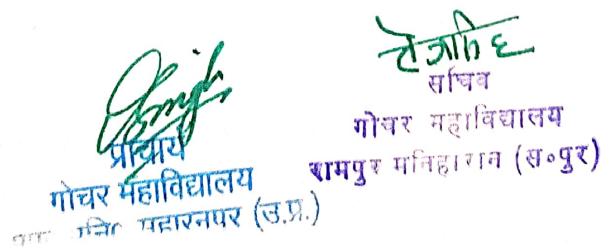 प्राचार्य
गोचर महाविद्यालय
महारनपर (उ.प्र.)
सचिव
गोचर महाविद्यालय
रामपुर मनिहारान (स०पुर)